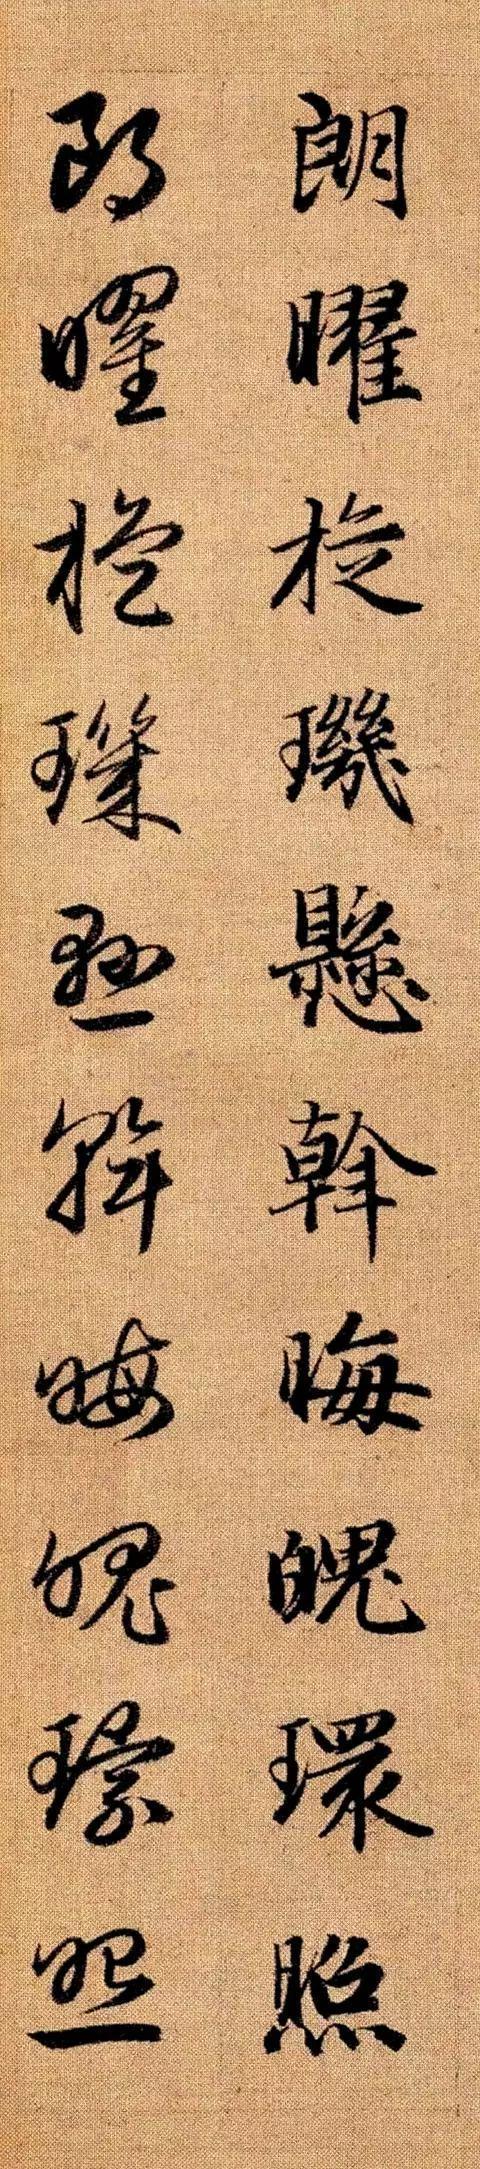 朗曜旋璣懸斡晦魄環照
朗曜旋璣懸斡晦魄環照